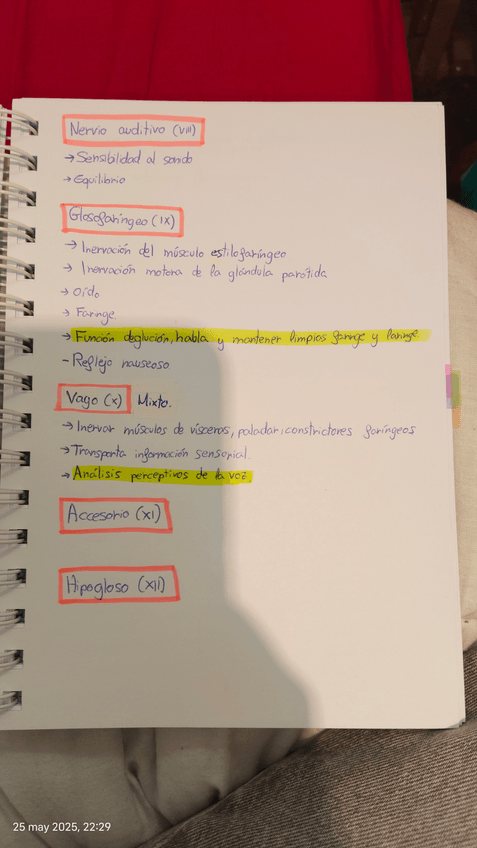 Nervio auditivo (VIII)
→ Sensibilidad al sonido
→ Equilibrio
Glosofaríngeo (IX)
→ Inervación del músculo estilofaríngeo
→ Inervación motora de la glándula parótida
→ Oído
→ Faringe
→ Función deglución, habla y mantener limpios faringe y laringe
- Reflejo nauseoso
Vago (X) Mixto.
→ Inervar músculos de vísceras, paladar, constrictores faríngeos
→ Transporta información sensorial
→ Análisis perceptivos de la voz
Accesorio (XI)
Hipogloso (XII)
25 may 2025, 22:29